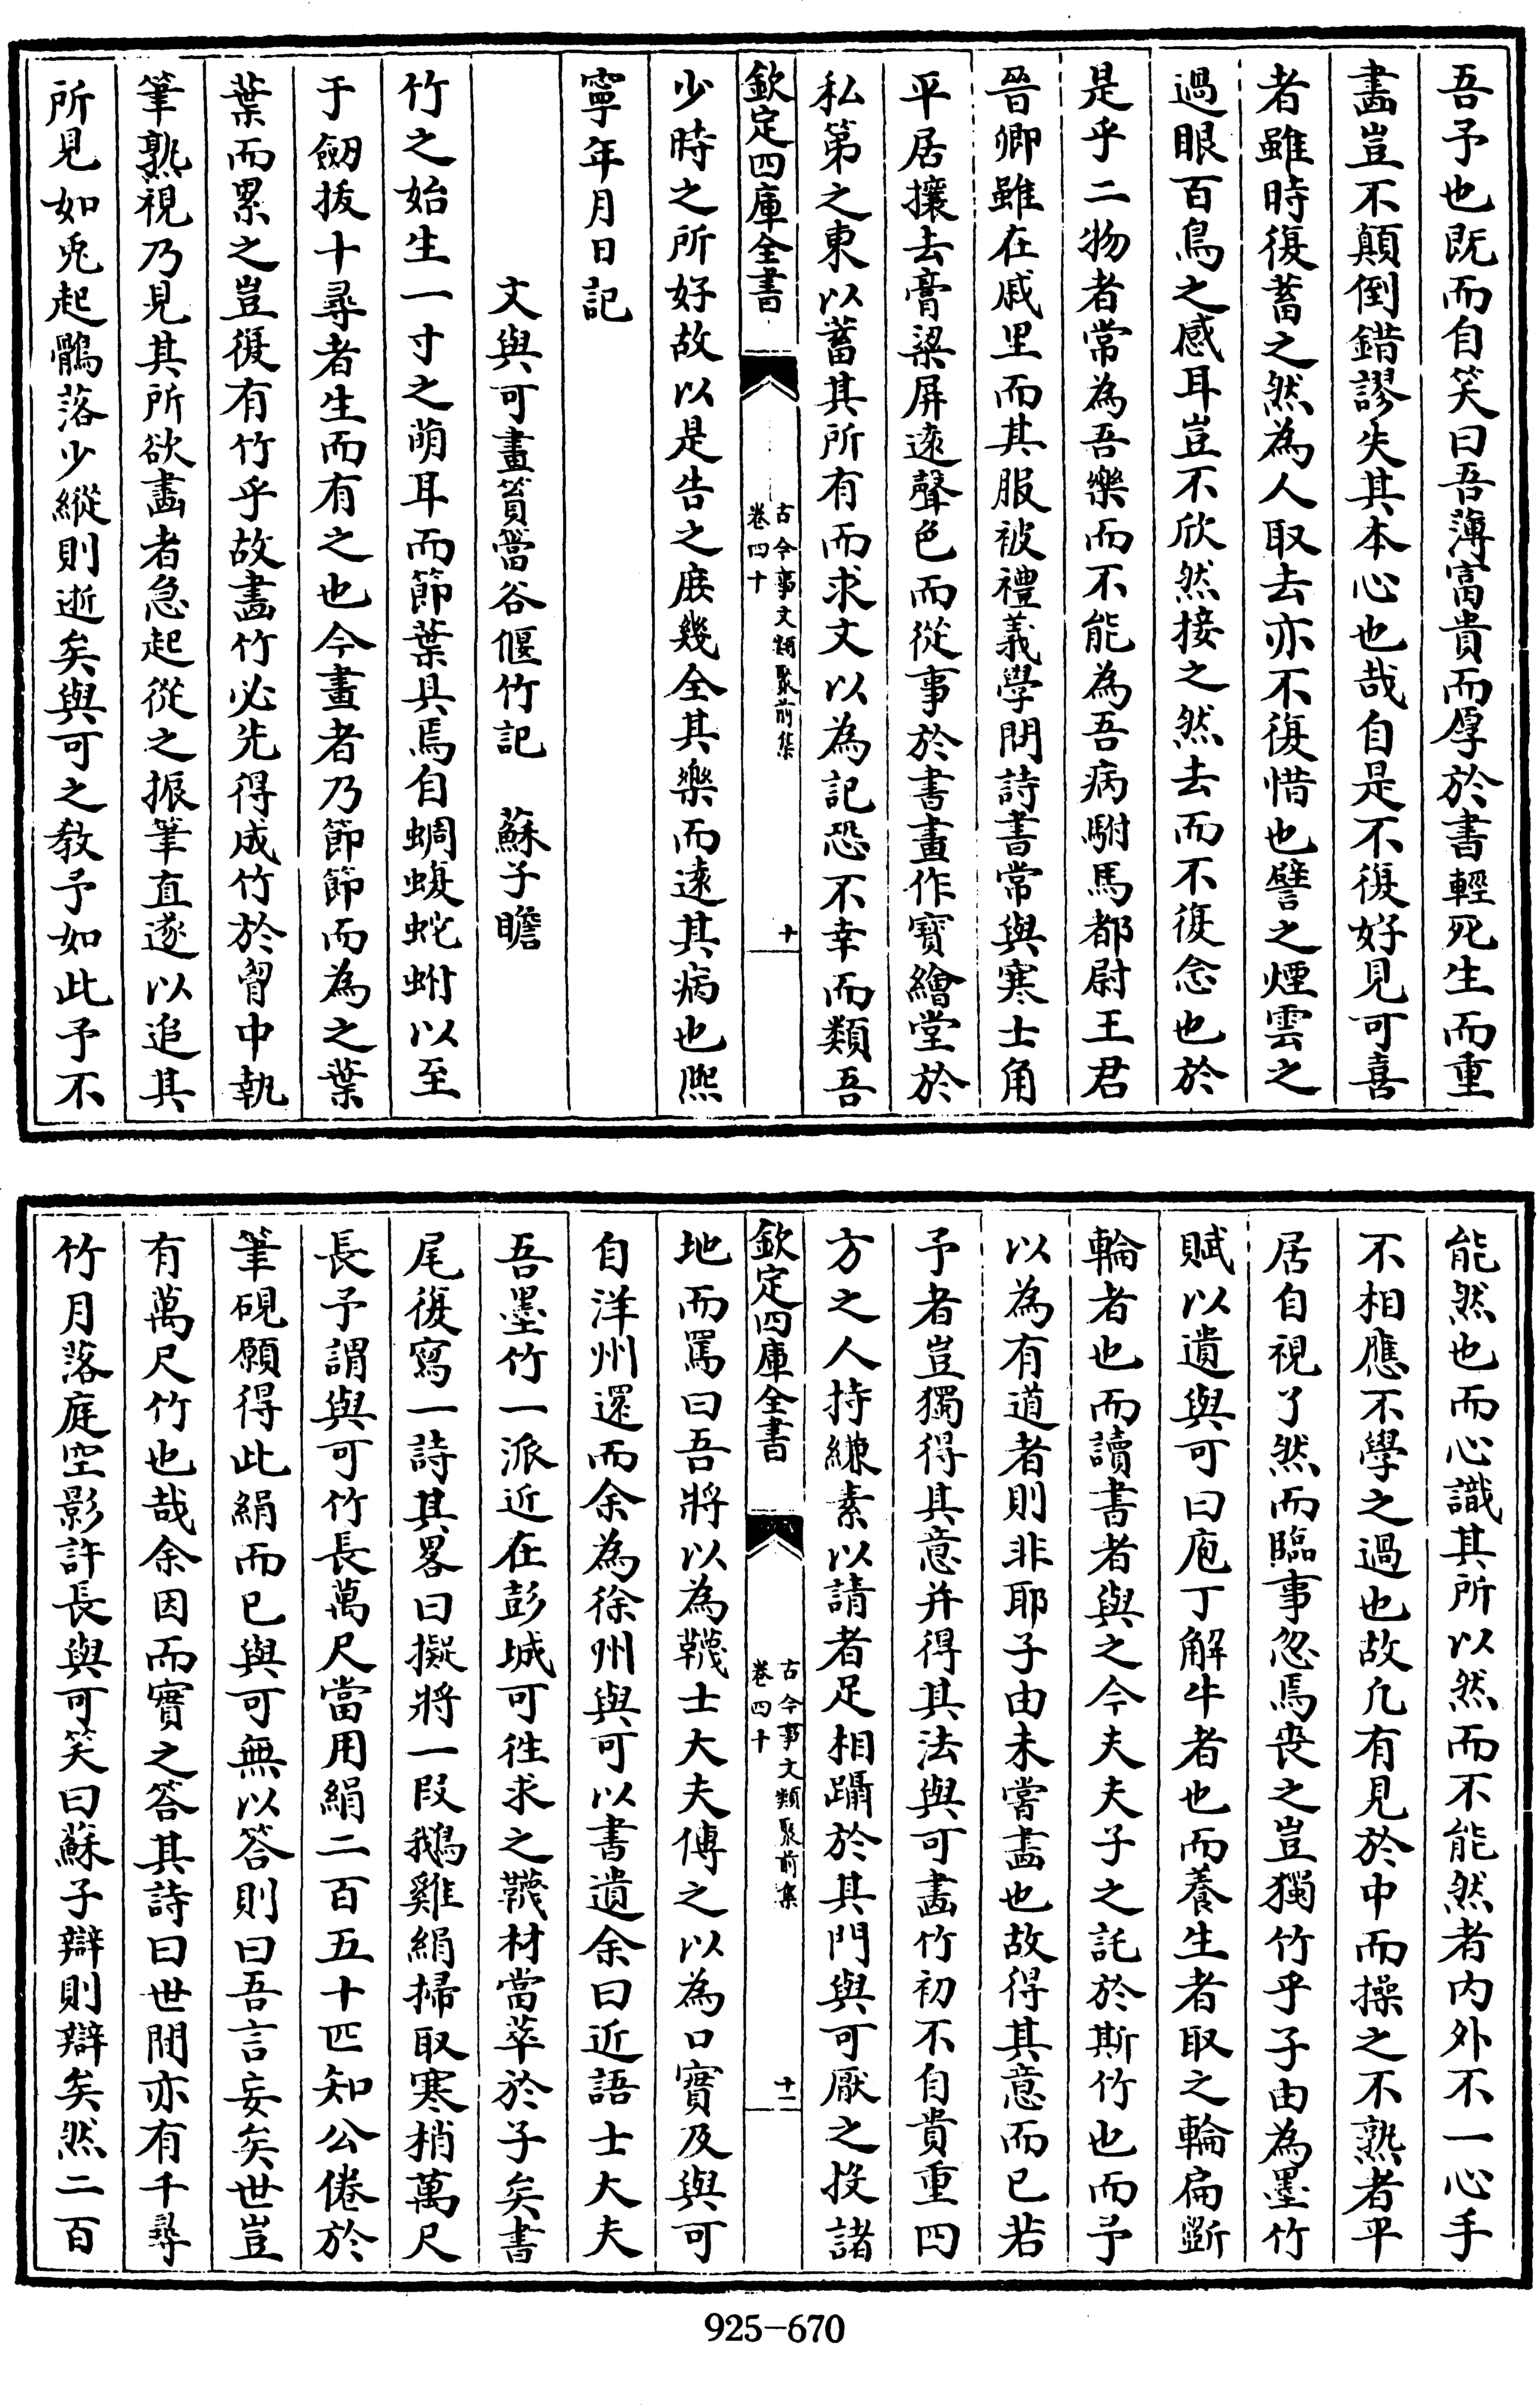 吾予也既而自笑曰吾薄富貴而厚於書輕死生而重
畵豈不顛倒錯謬失其本心也哉自是不復好見可喜
者雖時復蓄之然為人取去亦不復惜也譬之煙雲之
過眼百鳥之感耳豈不欣然接之然去而不復念也於
是乎二物者常為吾樂而不能為吾病駙馬都尉王君
晉卿雖在戚里而其服被禮義學問詩書常與寒士角
平居攘去膏粱屏逺聲色而從事於書畫作寳繪堂於
私第之東以蓄其所有而求文以為記恐不幸而類吾
欽定四庫全書
古今事文類聚前集
卷四十
十
少時之所好故以是告之庶幾全其樂而逺其病也熈
寧年月日記
文與可畫篔簹谷偃竹記 蘇子瞻
竹之始生一寸之萌耳而節葉具焉自蜩蝮蛇蚹以至
于劒拔十尋者生而有之也今畫者乃節節而為之葉
葉而累之豈復有竹乎故畵竹必先得成竹於胷中執
筆熟視乃見其所欲畵者急起從之振筆直遂以追其
所見如兎起鶻落少縱則逝矣與可之教予如此予不
能然也而心識其所以然而不能然者内外不一心手
不相應不學之過也故凢有見於中而操之不熟者平
居自視了然而臨事忽焉喪之豈獨竹乎子由為墨竹
賦以遺與可曰庖丁解牛者也而養生者取之輪扁斲
輪者也而讀書者與之今夫夫子之託於斯竹也而予
以為有道者則非耶子由未嘗畵也故得其意而已若
予者豈獨得其意并得其法與可畵竹初不自貴重四
方之人持縑素以請者足相躡於其門與可厭之投諸
欽定四庫全書
古今事文類聚前集
卷四十
十一
地而罵曰吾將以為韈士大夫傳之以為口實及與可
自洋州還而余為徐州與可以書遺余曰近語士大夫
吾墨竹一派近在彭城可徃求之韈材當萃於子矣書
尾復寫一詩其畧曰擬將一段鵝雞絹掃取寒梢萬尺
長予謂與可竹長萬尺當用絹二百五十匹知公倦於
筆硯願得此絹而已與可無以答則曰吾言妄矣世豈
有萬尺竹也哉余因而實之答其詩曰世間亦有千尋
竹月落庭空影許長與可笑曰蘇子辯則辯矣然二百
925-670